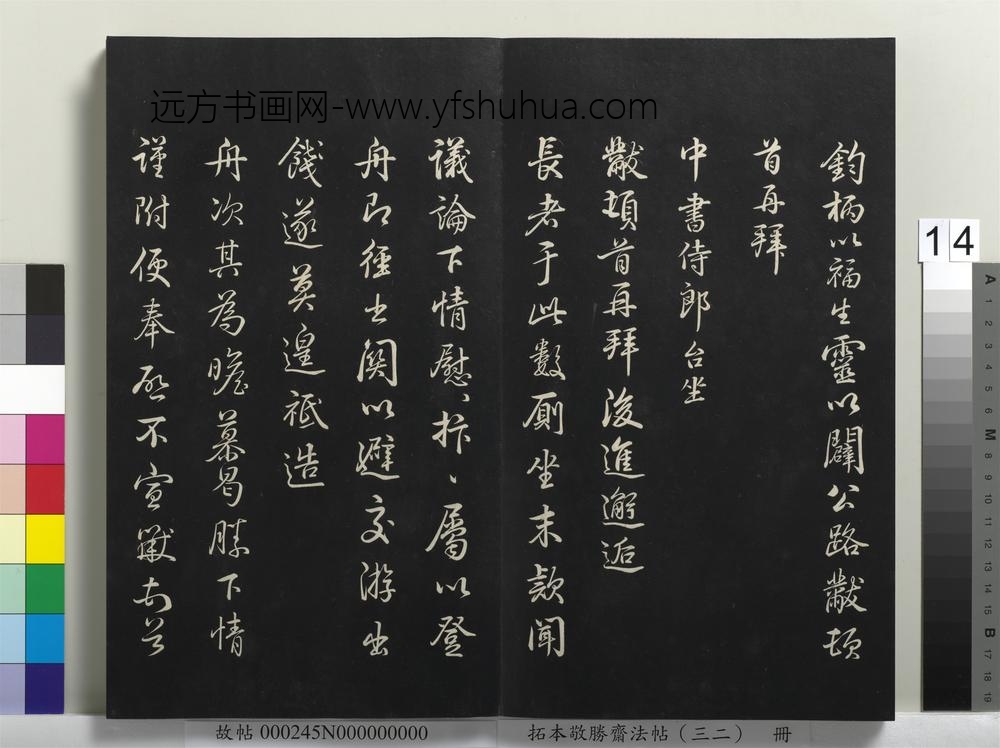 远方书画网-www.yfshuhua.com
鈞柄以福生靈以闢公路黻頓
首再拜
中書侍郎台坐
黻頓首再拜後進邂逅
長者于此數廁坐末款聞
議論下情慰〻抃〻屬以登
舟即徑出關以避交游出
餞遂莫遑祗造
舟次其為瞻慕曷勝下情
謹附便奉啟不宣黻
14
A 1 2 3 4 5 6 M 8 9 10 11 12 13 14 15 B 17 18 19
故帖 000245N000000000
拓本敬勝齋法帖（三二） 冊